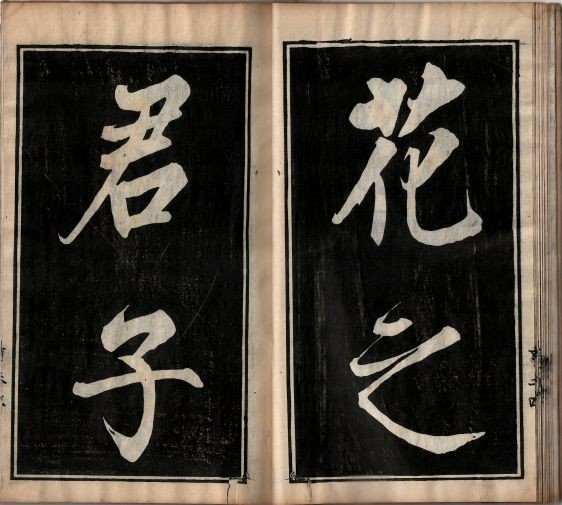 花之
君子